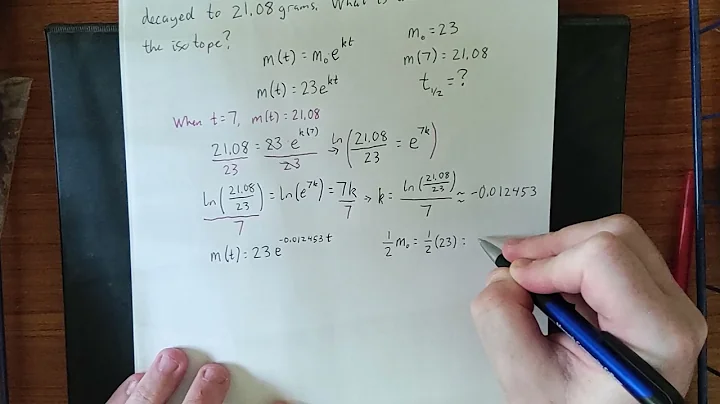 decayed to 21.08 grams. What is
the isotope?
m(t) = m₀e^{kt}
m(t) = 23e^{kt}
m₀ = 23
m(7) = 21.08
t_{1/2} = ?
When t=7, m(t) = 21.08
21.08/23 = 83 e^{k(7)}/23 → ln(21.08/23 = e^{7k})
ln(21.08/23)/7 = ln(e^{7k}) = 7k/7 → k = ln(21.08/23)/7 ≈ -0.012453
m(t) = 23e^{-0.012453t}
1/2 m₀ = 1/2 (23) =